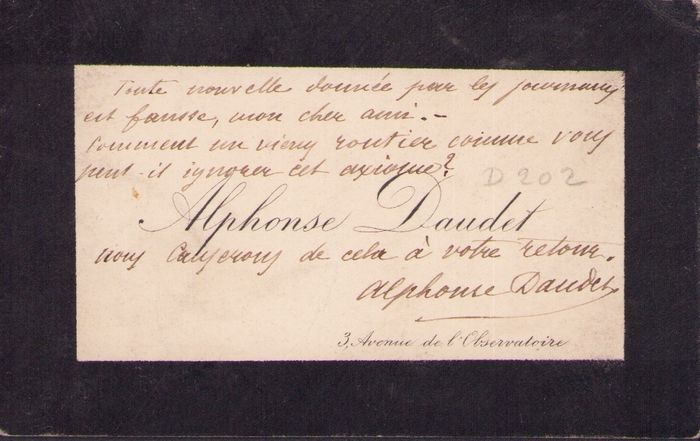 Toute nouvelle donnée par les journaux
est fausse, mon cher ami. –
Comment un vieux routier comme vous
peut-il ignorer cet axiome?
D 202
Alphonse Daudet
nous causerons de cela à votre retour.
Alphonse Daudet
3, Avenue de l'Observatoire